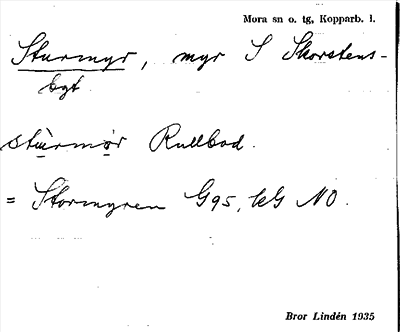 Mora sn o. tg, Kopparb. l.
Sturmyr, myr S Skorstens-
bygt.
stùrmȯr Rullbod.
= Stormyren G95, kG NO.
Bror Lindén 1935